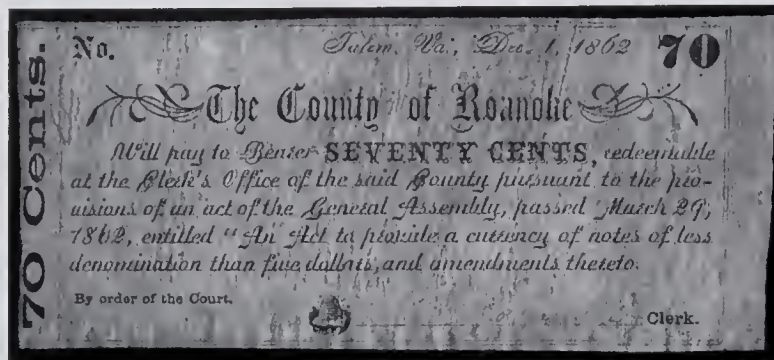 70 Cents.
No. Salem, Va., Dec. 1, 1862 70
The County of Roanoke
Will pay to Bearer SEVENTY CENTS, redeemable
at the Clerk's Office of the said County pursuant to the pro-
visions of an act of the General Assembly, passed March 29,
1862, entitled "An Act to provide a currency of notes of less
denomination than five dollars, and amendments thereto.
By order of the Court.
Clerk.